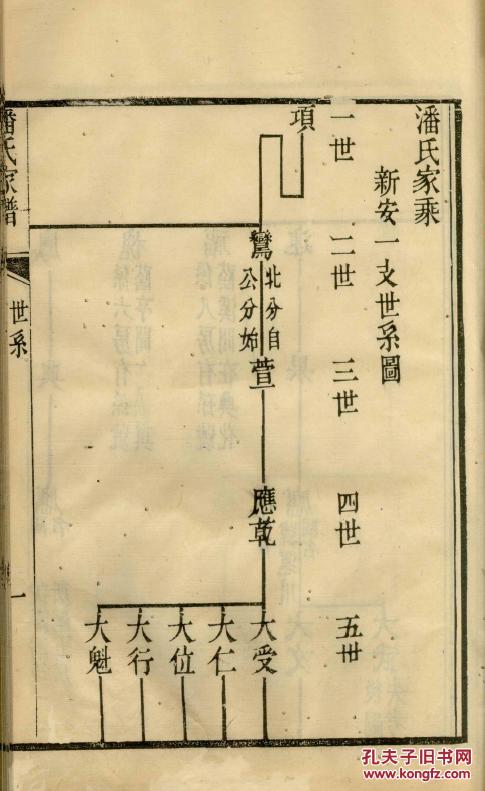 潘氏家乘
新安一支世系圖
一世 二世 三世 四世 五世
項
鸞 萱 應乾 大受
北分自
公分始
大仁
大位
大行
大魁
潘氏家譜
世系
一
孔夫子旧书网
www.kongfz.com